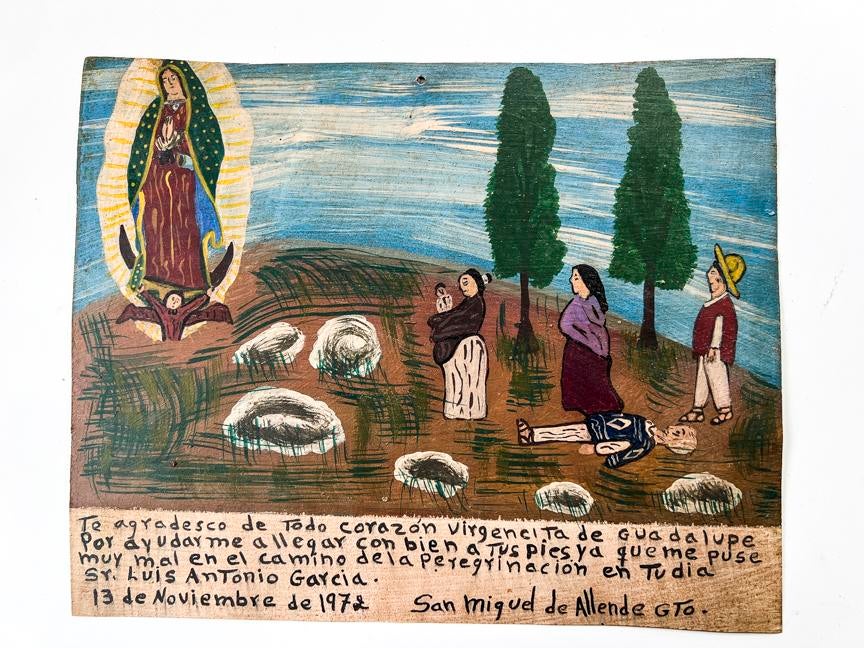 Te agradesco de Todo corazón virgencita de Guadalupe
Por ayudarme allegar con bien a Tus pies ya que me puse
muy mal en el camino dela Peregrinación en Tu dia
Sr. Luis Antonio Garcia.
13 de Noviembre de 1972 San Miguel de Allende GTo.